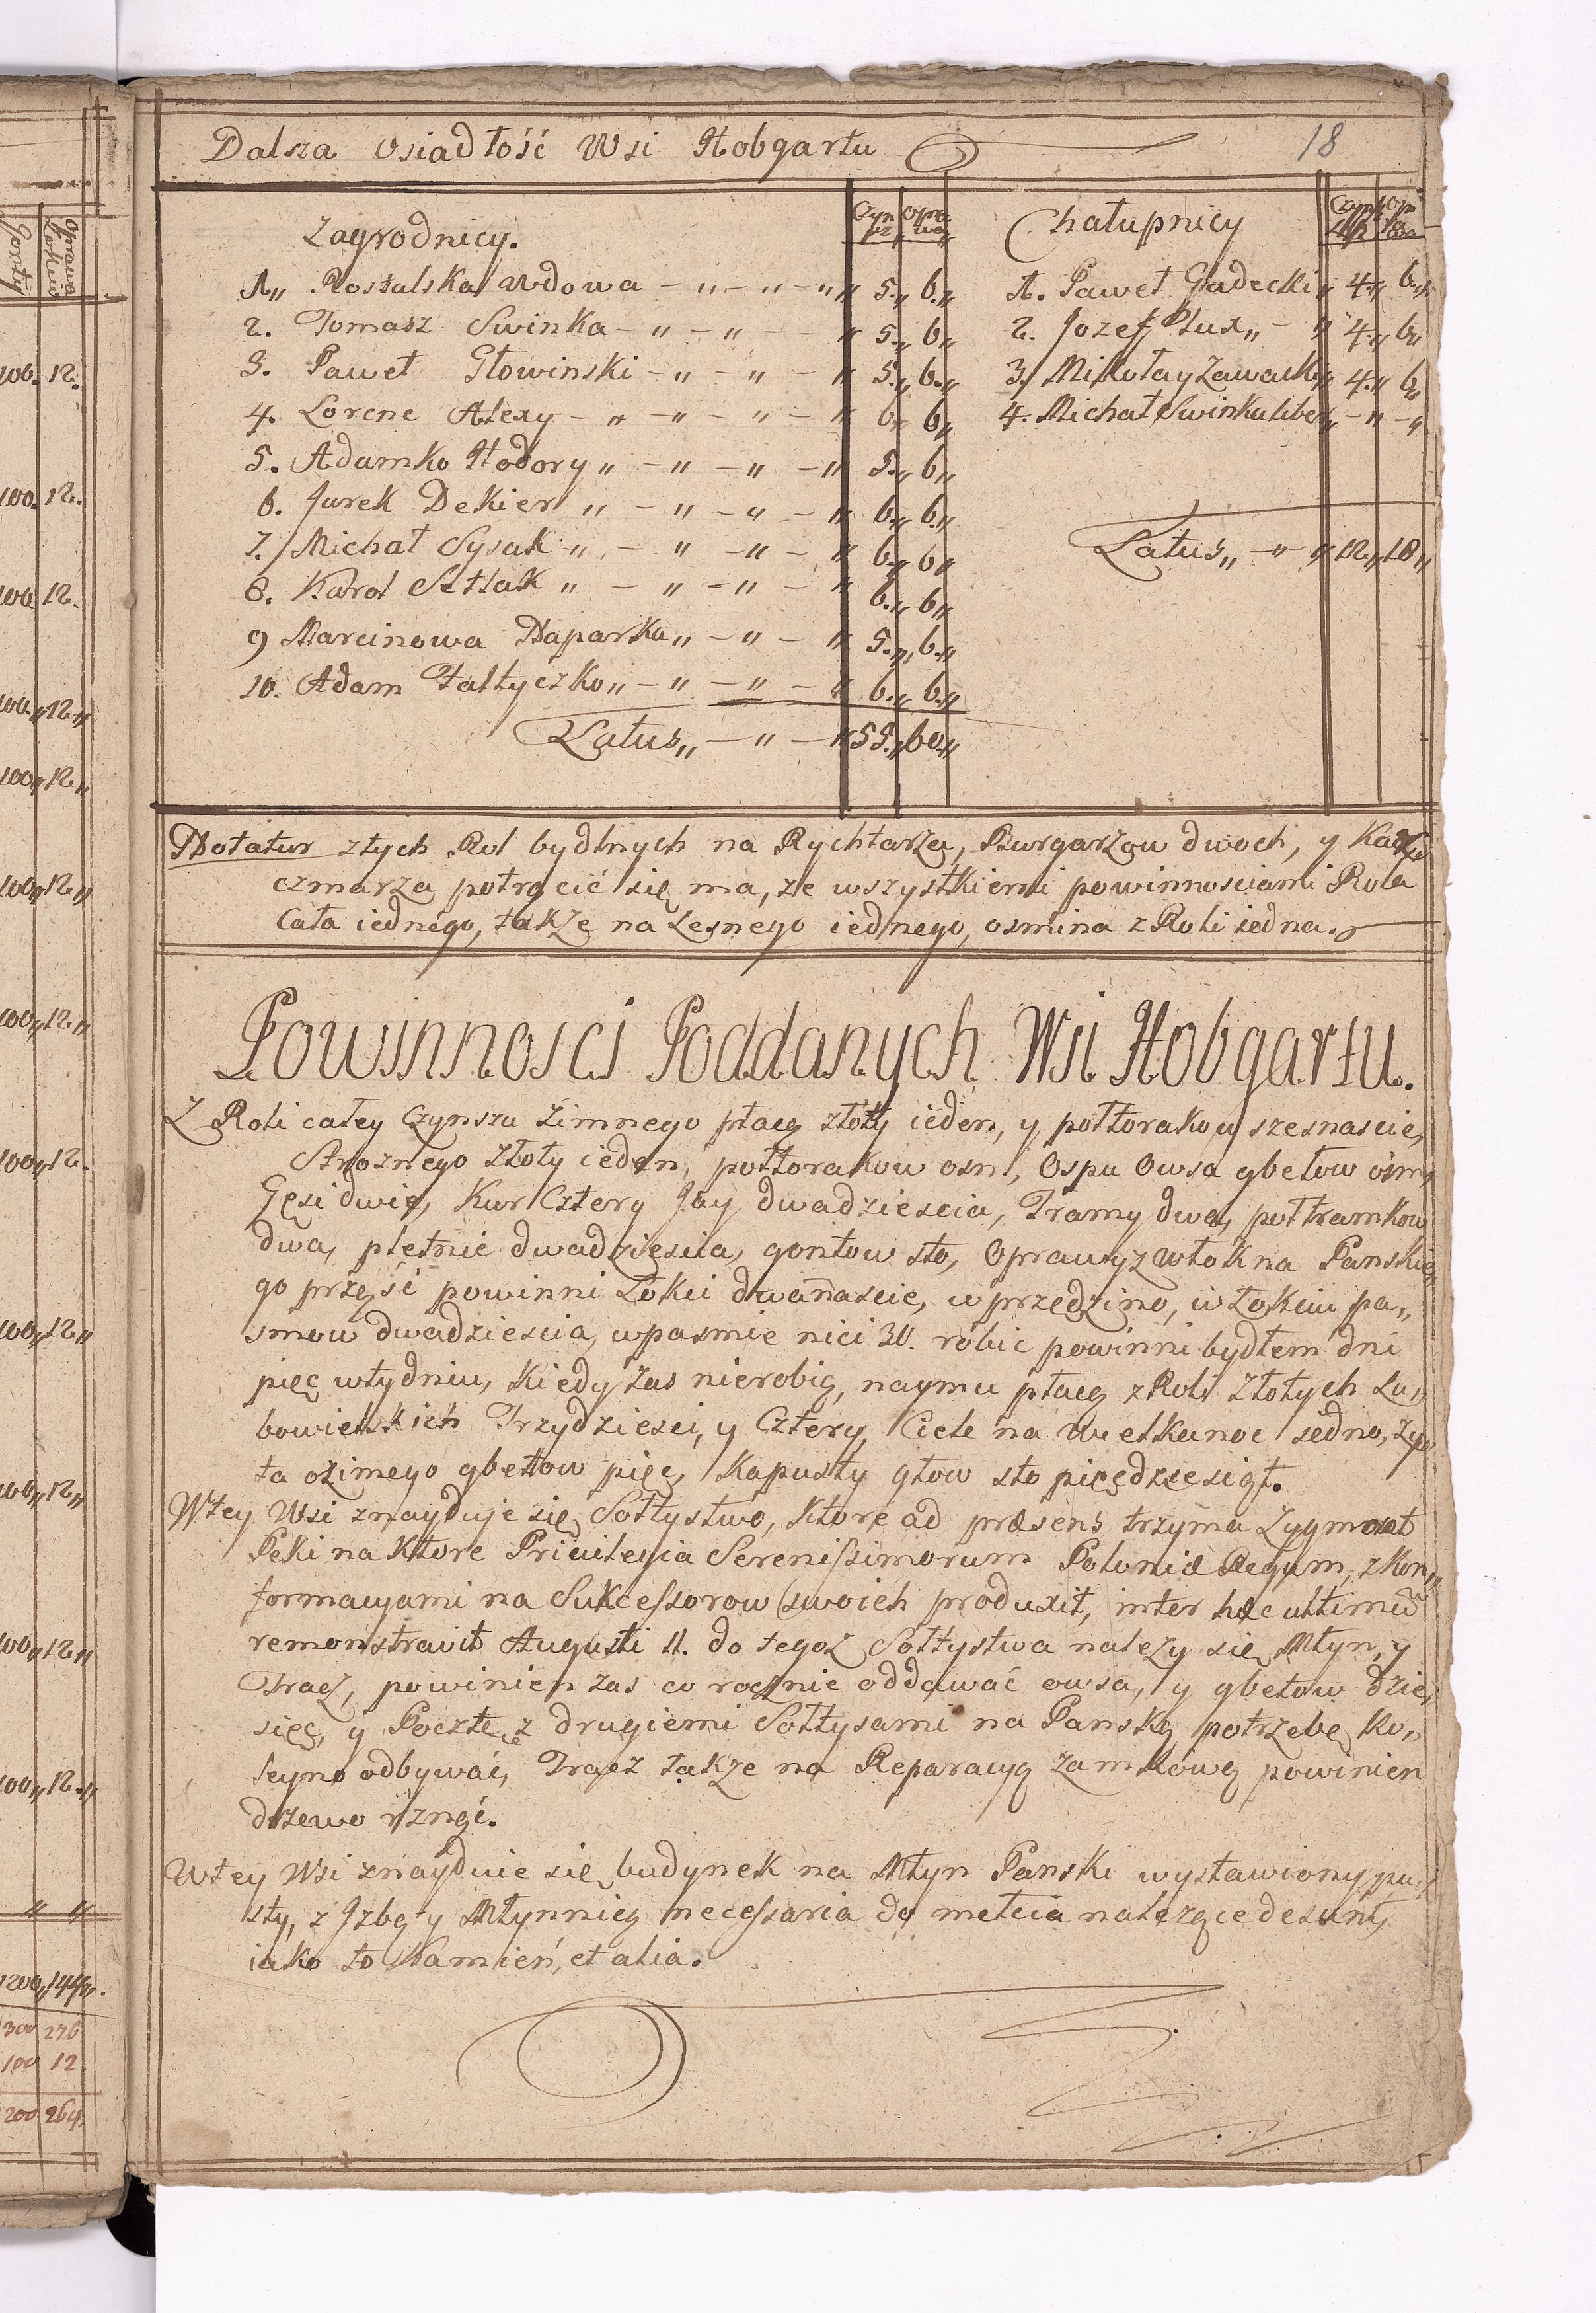 Dalsza osiadłość Wsi Hobgartu
18
Zagrodnicy. Czyn sz Opra wa
1„ Rostalska wdowa – „ – „ – „ 5.„ 6.„
2. Tomasz Swinka – „ – „ – – „ 5.„ 6„
3. Paweł Głowinski – „ – „ – „ 5.„ 6.„
4. Lorenc Alexy – „ – „ – „ – „ 6„ 6„
5. Adamko Hodory „ – „ – „ – „ 5.„ 6„
6. Jurek Dekier „ – „ – „ – „ 6.„ 6.„
7. Michał Sysak „ – „ – „ – „ 6.„ 6„
8. Karol Setlak „ – „ – „ – „ 6.„ 6„
9 Marcinowa Haparka „ – „ – „ 5.„ 6.„
10. Adam Faltyczko „ – „ – „ – „ 6.„ 6.„
Latus „ – „ – „ 55.„ 60.„
Chałupnicy
1. Paweł Gadecki „ 4.„ 6.„
2. Jozef Lux „ – „ 4.„ 6„
3. Mikołay Zawacki „ 4.„ 6„
4. Michał Swinka liber „ – „ – „
Latus „ – „ – „ 12„ 18„
Notatur z tych Rol bydlnych na Rychtarza, Burgarzow dwoch, y Kar
czmarza potrącić się ma, ze wszystkiemi powinnosciami Rola
cała iednego, także na Leśnego iednego, osmina z Roli iedna.
Powinnosci Poddanych Wsi Hobgartu.
Z Roli całey Czynszu Zimnego płacą złoty ieden, y połtorakow szesnascie,
Stroznego Złoty ieden, połtorakow osm, Ospu Owsa gbełow ośm,
Gęsi dwie, Kur Cztery Jay dwadziescia, Tramy dwa, połtramkow
dwa, płetnic dwadziescia, gontow sto, Oprawy z włokna Panskie
go prząść powinni Łokci dwanascie, w przędzino, w Łokciu pa„
smow dwadziescia, w pasmie nici 30. robic powinni bydłem dni
pięc w tydniu, Kiedy zas nierobią, naymu płacą z Roli Złotych Lu„
bowielskich Trzydziesci, y Cztery, Ciele na Wielkanoc iedno, Zy„
ta ozimego gbełow pięc, Kapusty głow sto pięcdziesiąt.
W tey Wsi znayduje się Sołtystwo, Ktore ad præsens trzyma Zygmont
Peki na Ktore Privilegia Serenissimorum Poloniæ Regum, z Kon„
formacyami na Sukcessorow swoich produxit, inter hæc ultimū
remonstravit Augusti II. do tegoz Sołtystwa nalezy się Młyn, y
Tracz, powinien zas co rocznie oddawać owsa, y gbełow dzie„
sięć, y Pocztę z drugiemi Sołtysami na Panską potrzebę Ko„
leyno odbywać, Tracz także na Reparacyą Zamkową powinien
drzewo rznąć.
W tey Wsi znayduie się budynek na Młyn Panski wystawiony pu„
sty, z Jzbą y Młynnicą necessaria do mełcia nalezące desunt,
iako to Kamień, et alia.
100. 12.
100. 12.
100 12.
100.„ 12„
100„ 12„
100„ 12„
100„ 12„
100„ 12.
100„ 12„
100„ 12„
100„ 12„
100„ 12.„
„ „
1200„ 144„.
300 276
100 12.
200 264